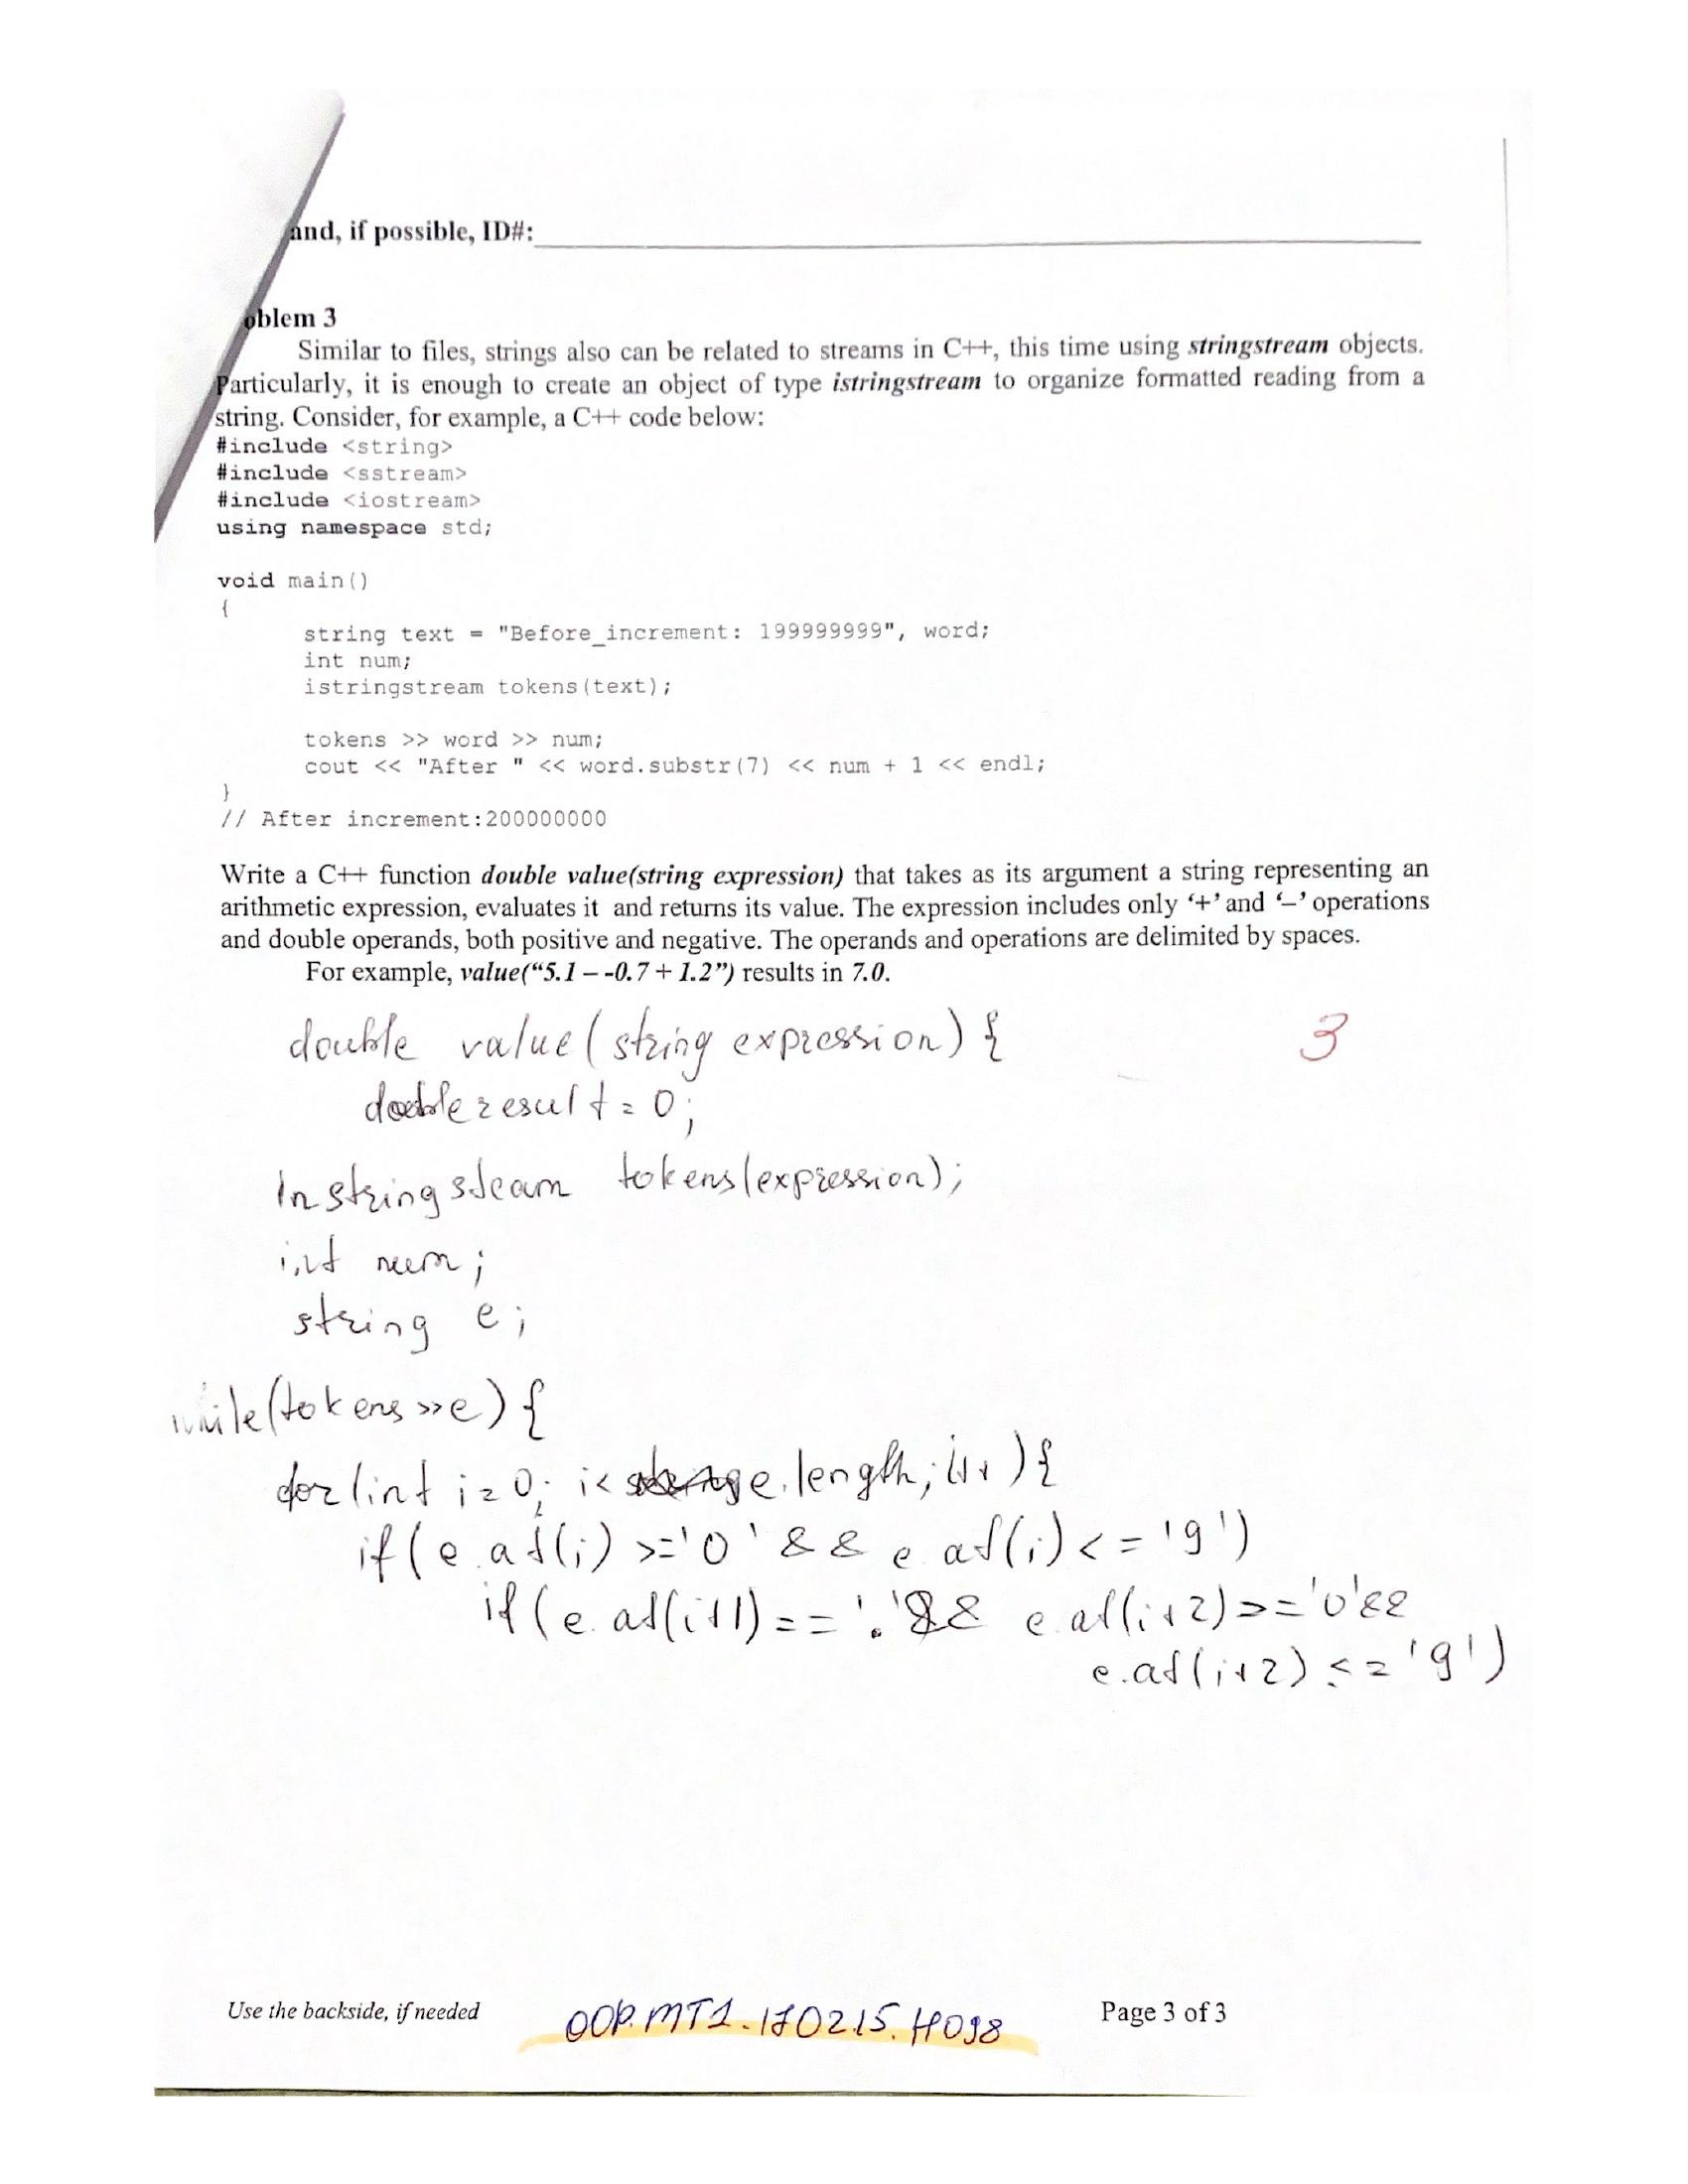 and, if possible, ID#:
oblem 3
Similar to files, strings also can be related to streams in C++, this time using stringstream objects.
Particularly, it is enough to create an object of type istringstream to organize formatted reading from a
string. Consider, for example, a C++ code below:
#include <string>
#include <sstream>
#include <iostream>
using namespace std;
void main()
{
string text = "Before_increment: 199999999", word;
int num;
istringstream tokens(text);
tokens >> word >> num;
cout << "After " << word.substr(7) << num + 1 << endl;
}
// After increment:200000000
Write a C++ function double value(string expression) that takes as its argument a string representing an
arithmetic expression, evaluates it and returns its value. The expression includes only ‘+’ and ‘–’ operations
and double operands, both positive and negative. The operands and operations are delimited by spaces.
For example, value(“5.1 – -0.7 + 1.2”) results in 7.0.
double value(string expression) {
3
double result = 0;
In stringsteam tokens(expression);
int num;
string e;
while(tokens >> e) {
for(int i=0; i< e.length; i++){
if(e.at(i) >='0' && e.at(i) <= '9')
if(e.at(i+1)=='.'&& e.at(i+2)>='0'&&
e.at(i+2) <='9')
Use the backside, if needed
OOP.MT1.170215.H098
Page 3 of 3